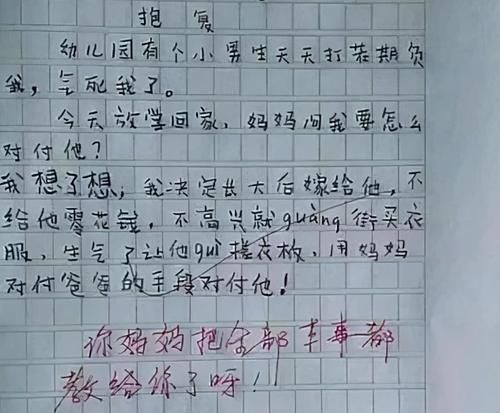 抱复
幼儿园有个小男生天天打若期负
我，气死我了。
今天放学回家，妈妈问我要怎么
对付他？
我想了想，我决定长大后嫁给他，不
给他零花钱，不高兴就guàng街买衣
服，生气了让他guì搓衣板，用妈妈
对付爸爸的手段对付他！
你妈妈把全部本事都
教给你了呀！